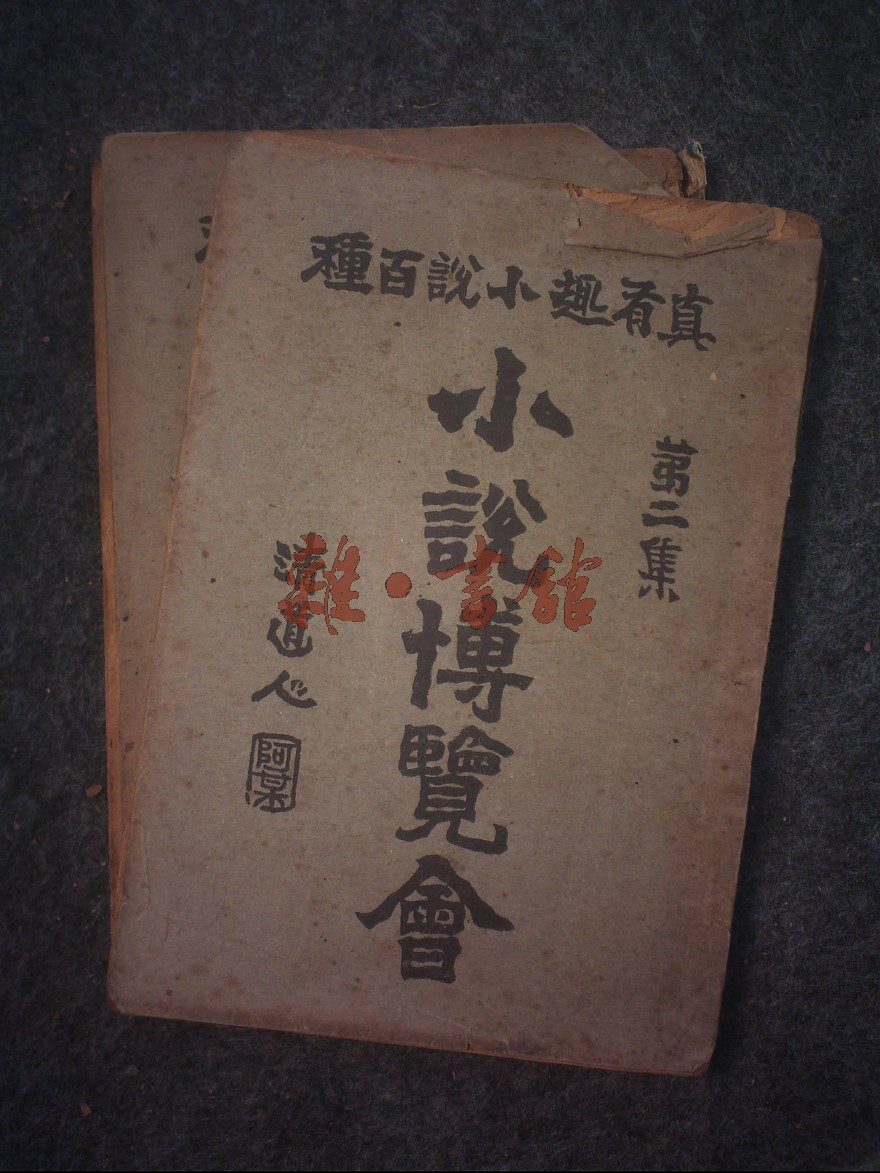 真有趣小說百種
第二集
小說博覽會
清道人
阿某
雜·書館